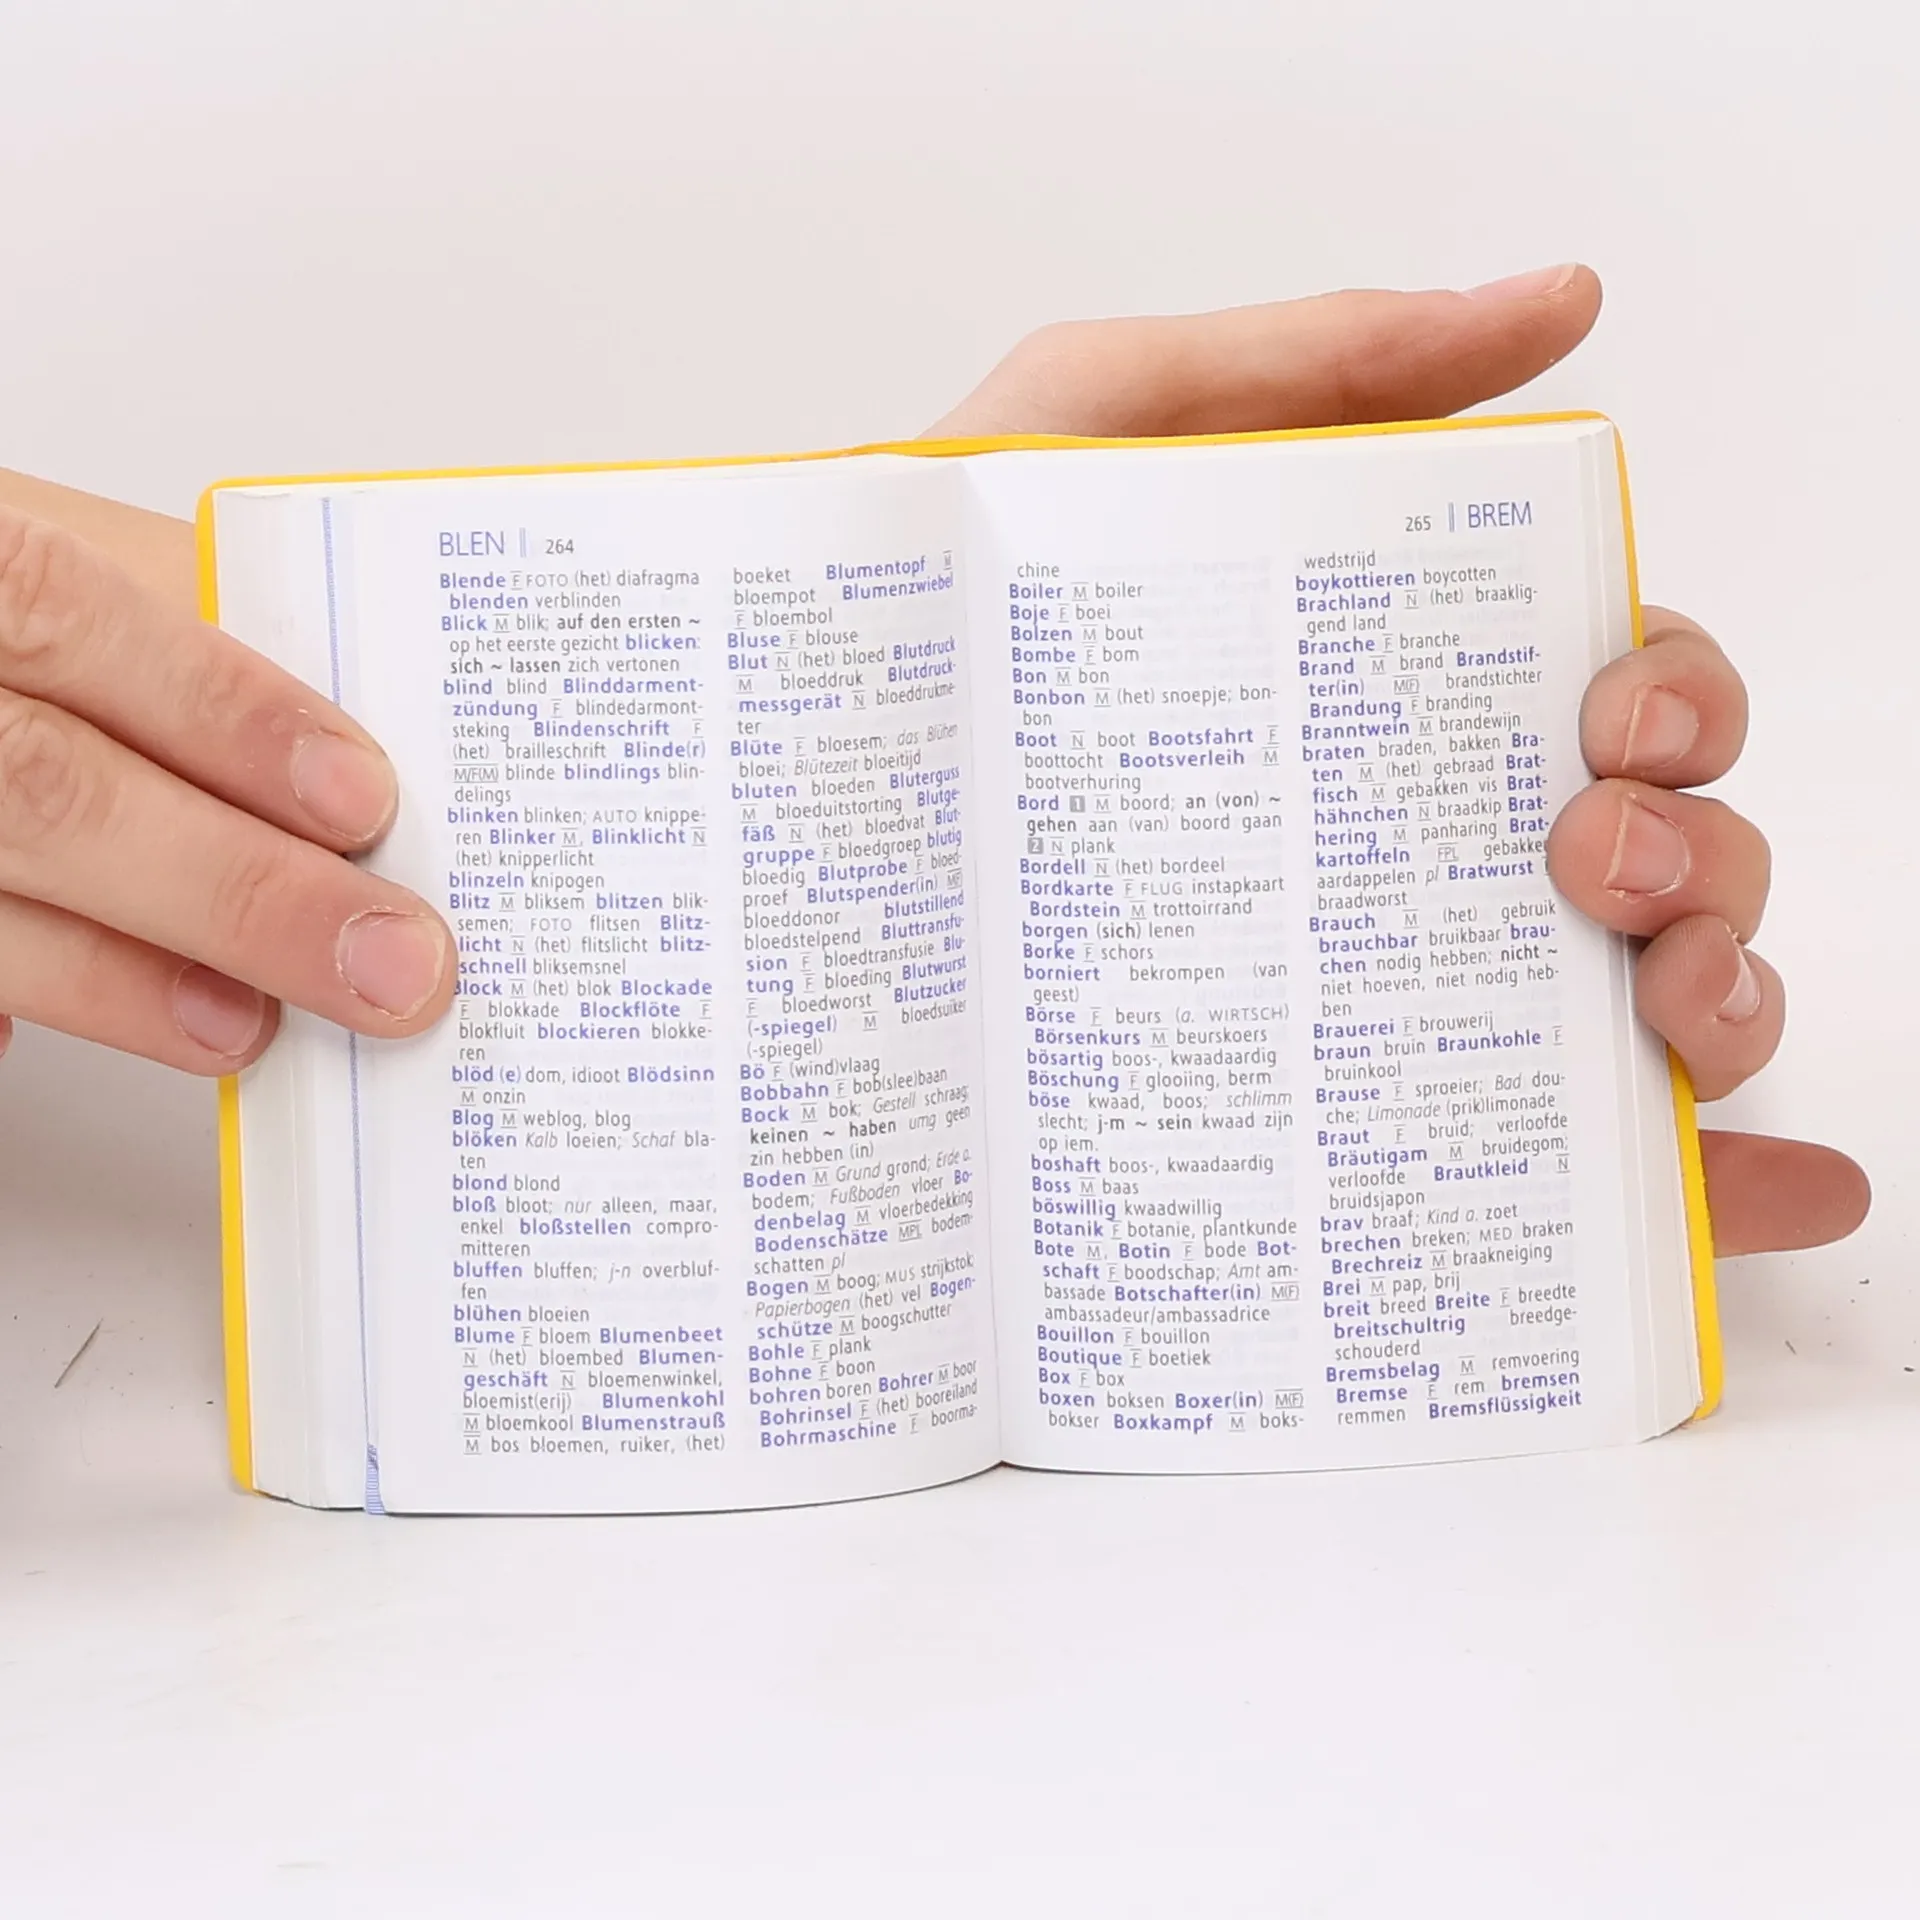 BLEN 264
Blende F FOTO (het) diafragma
blenden verblinden
Blick M blik; auf den ersten ~
op het eerste gezicht blicken:
sich ~ lassen zich vertonen
blind blind Blinddarment-
zündung F blindedarmont-
steking Blindenschrift F
(het) brailleschrift Blinde(r)
M/F(M) blinde blindlings blin-
delings
blinken blinken; AUTO knippe-
ren Blinker M, Blinklicht N
(het) knipperlicht
blinzeln knipogen
Blitz M bliksem blitzen blik-
semen; FOTO flitsen Blitz-
licht N (het) flitslicht blitz-
schnell bliksemsnel
Block M (het) blok Blockade
F blokkade Blockflöte F
blokfluit blockieren blokke-
ren
blöd (e) dom, idioot Blödsinn
M onzin
Blog M weblog, blog
blöken Kalb loeien; Schaf bla-
ten
blond blond
bloß bloot; nur alleen, maar,
enkel bloßstellen compro-
mitteren
bluffen bluffen; j-n overbluf-
fen
blühen bloeien
Blume F bloem Blumenbeet
N (het) bloembed Blumen-
geschäft N bloemenwinkel,
bloemist(erij) Blumenkohl
M bloemkool Blumenstrauß
M bos bloemen, ruiker, (het)
boeket Blumentopf M
bloempot Blumenzwiebel
F bloembol
Bluse F blouse
Blut N (het) bloed Blutdruck
M bloeddruk Blutdruck-
messgerät N bloeddrukme-
ter
Blüte F bloesem; das Blühen
bloei; Blütezeit bloeitijd
bluten bloeden Bluterguss
M bloeduitstorting Blutge-
fäß N (het) bloedvat Blut-
gruppe F bloedgroep blutig
bloedig Blutprobe F bloed-
proef Blutspender(in) M(F)
bloeddonor blutstillend
bloedstelpend Bluttransfu-
sion F bloedtransfusie Blu-
tung F bloeding Blutwurst
F bloedworst Blutzucker
(-spiegel) M bloedsuiker
(-spiegel)
Bö F (wind)vlaag
Bobbahn F bob(slee)baan
Bock M bok; Gestell schraag;
keinen ~ haben umg geen
zin hebben (in)
Boden M Grund grond; Erde a.
bodem; Fußboden vloer Bo-
denbelag M vloerbedekking
Bodenschätze MPL bodem-
schatten pl
Bogen M boog; MUS strijkstok;
Papierbogen (het) vel Bogen-
schütze M boogschutter
Bohle F plank
Bohne F boon
bohren boren Bohrer M boor
Bohrinsel F (het) booreiland
Bohrmaschine F boorma-
265 BREM
chine
Boiler M boiler
Boje F boei
Bolzen M bout
Bombe F bom
Bon M bon
Bonbon M (het) snoepje; bon-
bon
Boot N boot Bootsfahrt F
boottocht Bootsverleih M
bootverhuring
Bord 1 M boord; an (von) ~
gehen aan (van) boord gaan
2 N plank
Bordell N (het) bordeel
Bordkarte F FLUG instapkaart
Bordstein M trottoirrand
borgen (sich) lenen
Borke F schors
borniert bekrompen (van
geest)
Börse F beurs (a. WIRTSCH)
Börsenkurs M beurskoers
bösartig boos-, kwaadaardig
Böschung F glooiing, berm
böse kwaad, boos; schlimm
slecht; j-m ~ sein kwaad zijn
op iem.
boshaft boos-, kwaadaardig
Boss M baas
böswillig kwaadwillig
Botanik F botanie, plantkunde
Bote M, Botin F bode Bot-
schaft F boodschap; Amt am-
bassade Botschafter(in) M(F)
ambassadeur/ambassadrice
Bouillon F bouillon
Boutique F boetiek
Box F box
boxen boksen Boxer(in) M(F)
bokser Boxkampf M boks-
wedstrijd
boykottieren boycotten
Brachland N (het) braaklig-
gend land
Branche F branche
Brand M brand Brandstif-
ter(in) M(F) brandstichter
Brandung F branding
Branntwein M brandewijn
braten braden, bakken Bra-
ten M (het) gebraad Brat-
fisch M gebakken vis Brat-
hähnchen N braadkip Brat-
hering M panharing Brat-
kartoffeln FPL gebakken
aardappelen pl Bratwurst
braadworst
Brauch M (het) gebruik
brauchbar bruikbaar brau-
chen nodig hebben; nicht ~
niet hoeven, niet nodig heb-
ben
Brauerei F brouwerij
braun bruin Braunkohle F
bruinkool
Brause F sproeier; Bad dou-
che; Limonade (prik)limonade
Braut F bruid; verloofde
Bräutigam M bruidegom;
verloofde Brautkleid N
bruidsjapon
brav braaf; Kind a. zoet
brechen breken; MED braken
Brechreiz M braakneiging
Brei M pap, brij
breit breed Breite F breedte
breitschultrig breedge-
schouderd
Bremsbelag M remvoering
Bremse F rem bremsen
remmen Bremsflüssigkeit